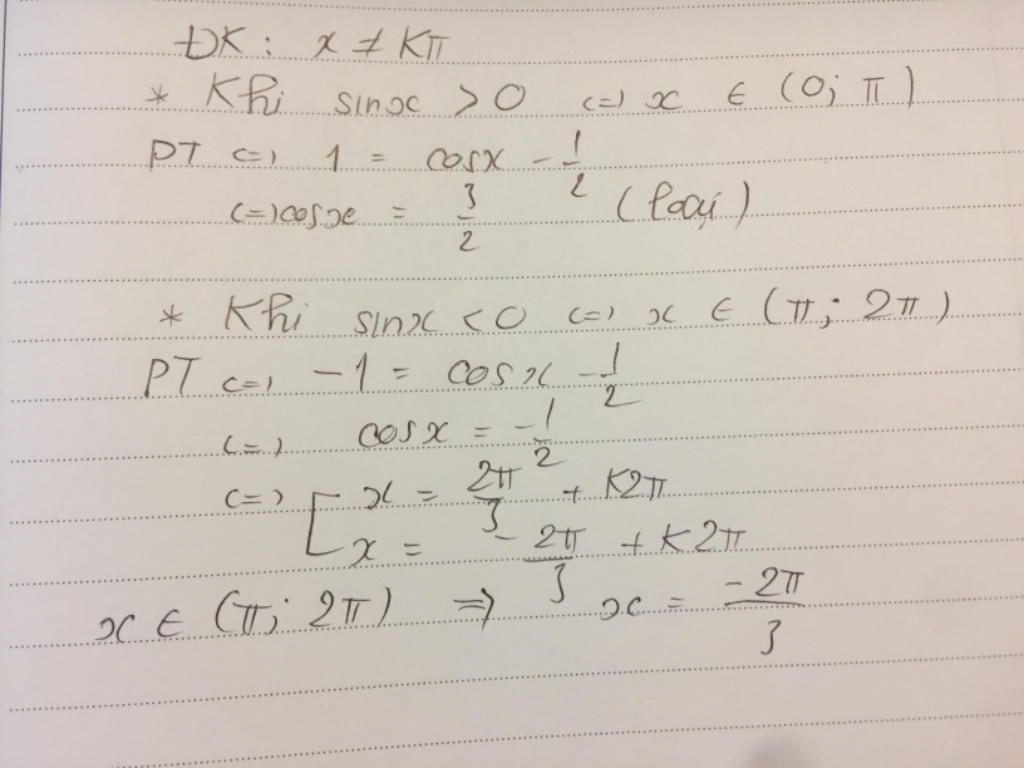 ĐK: x ≠ Kπ
* Khi sinx > 0 <=> x ∈ (0; π)
PT <=> 1 = cosx - 1/2
<=> cosx = 3/2 (loại)
* Khi sinx < 0 <=> x ∈ (π; 2π)
PT <=> -1 = cosx - 1/2
<=> cosx = -1/2
<=> [ x = 2π/3 + K2π
x = -2π/3 + K2π
x ∈ (π; 2π) => x = -2π/3